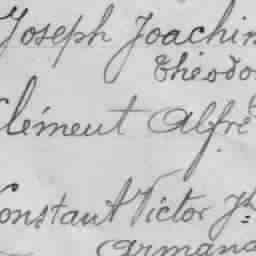 Joseph Joachim
Théodo
Clément Alfre
Constant Victor Jh
Armand